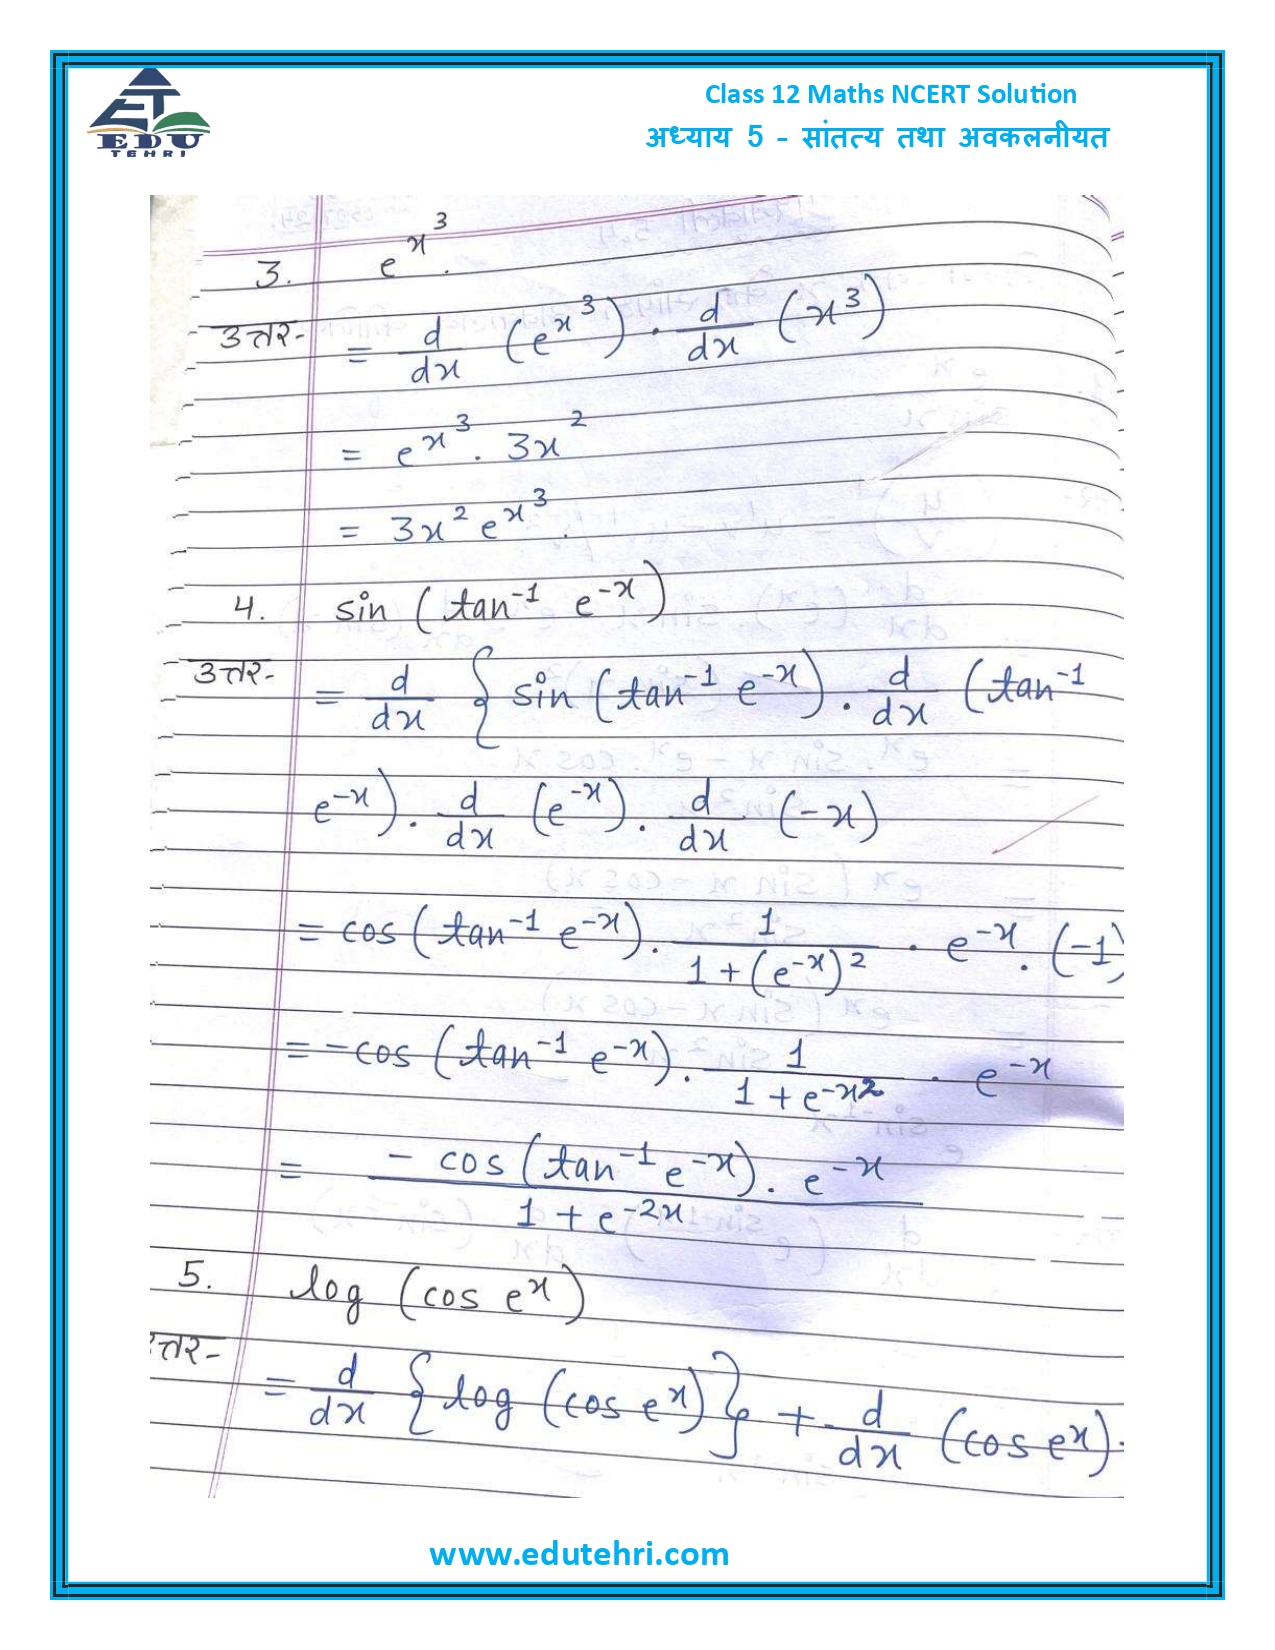 EDU
TEHRI
Class 12 Maths NCERT Solution
अध्याय 5 - सांतत्य तथा अवकलनीयत
3. e^x^3.
उत्तर- = d/dx (e^x^3) . d/dx (x^3)
= e^x^3 . 3x^2
= 3x^2 e^x^3.
4. sin (tan^-1 e^-x)
उत्तर- = d/dx { sin (tan^-1 e^-x) . d/dx (tan^-1
e^-x) . d/dx (e^-x) . d/dx (-x)
= cos (tan^-1 e^-x) . 1/1+(e^-x)^2 . e^-x . (-1)
= -cos (tan^-1 e^-x) . 1/1+e^-x2 . e^-x
= - cos (tan^-1 e^-x) . e^-x / 1+e^-2x
5. log (cos e^x)
त्तर- = d/dx { log (cos e^x) } + d/dx (cos e^x) .
www.edutehri.com